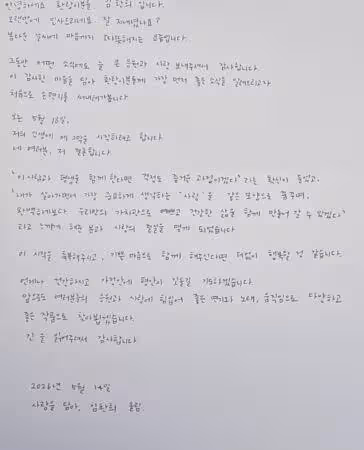 안녕하세요 환랑이분들, 김환희 입니다.
오랜만에 인사드리네요. 잘 지내셨나요?
봄다운 날씨에 마음까지 따뜻해지는 요즘입니다.
그동안 어떤 소식에도 늘 큰 응원과 사랑 보내주셔서 감사합니다.
이 감사한 마음을 담아 환랑이분들께 가장 먼저 좋은 소식을 알려드리고자
처음으로 손편지를 써내려가봅니다
오는 5월 18일,
저의 인생에 제 2막을 시작하려고 합니다.
네 여러분, 저 결혼합니다.
'이 사람과 평생을 함께 한다면 걱정도 즐거운 과정이겠다' 라는 확신이 들었고,
'내가 살아가면서 가장 중요하게 생각하는 "사랑"을 같은 모양으로 꿈꾸며,
완벽하기보다 우리만의 가치관으로 예쁘고 건강한 삶을 함께 만들어 갈 수 있겠다'
라고 느끼게 해준 분과 사랑의 결실을 맺게 되었습니다
이 시작을 축복해주시고, 기쁜 마음으로 함께 해주신다면 더없이 행복할 것 같습니다.
언제나 건강하시고 가정안에 평안이 있길 기도하겠습니다.
앞으로도 여러분들의 응원과 사랑에 힘입어 좋은 연기와 노래, 움직임으로 다양하고
좋은 작품으로 찾아뵙겠습니다.
긴 글 읽어주셔서 감사합니다.
2026년 5월 14일
사랑을 담아, 김환희 올림.